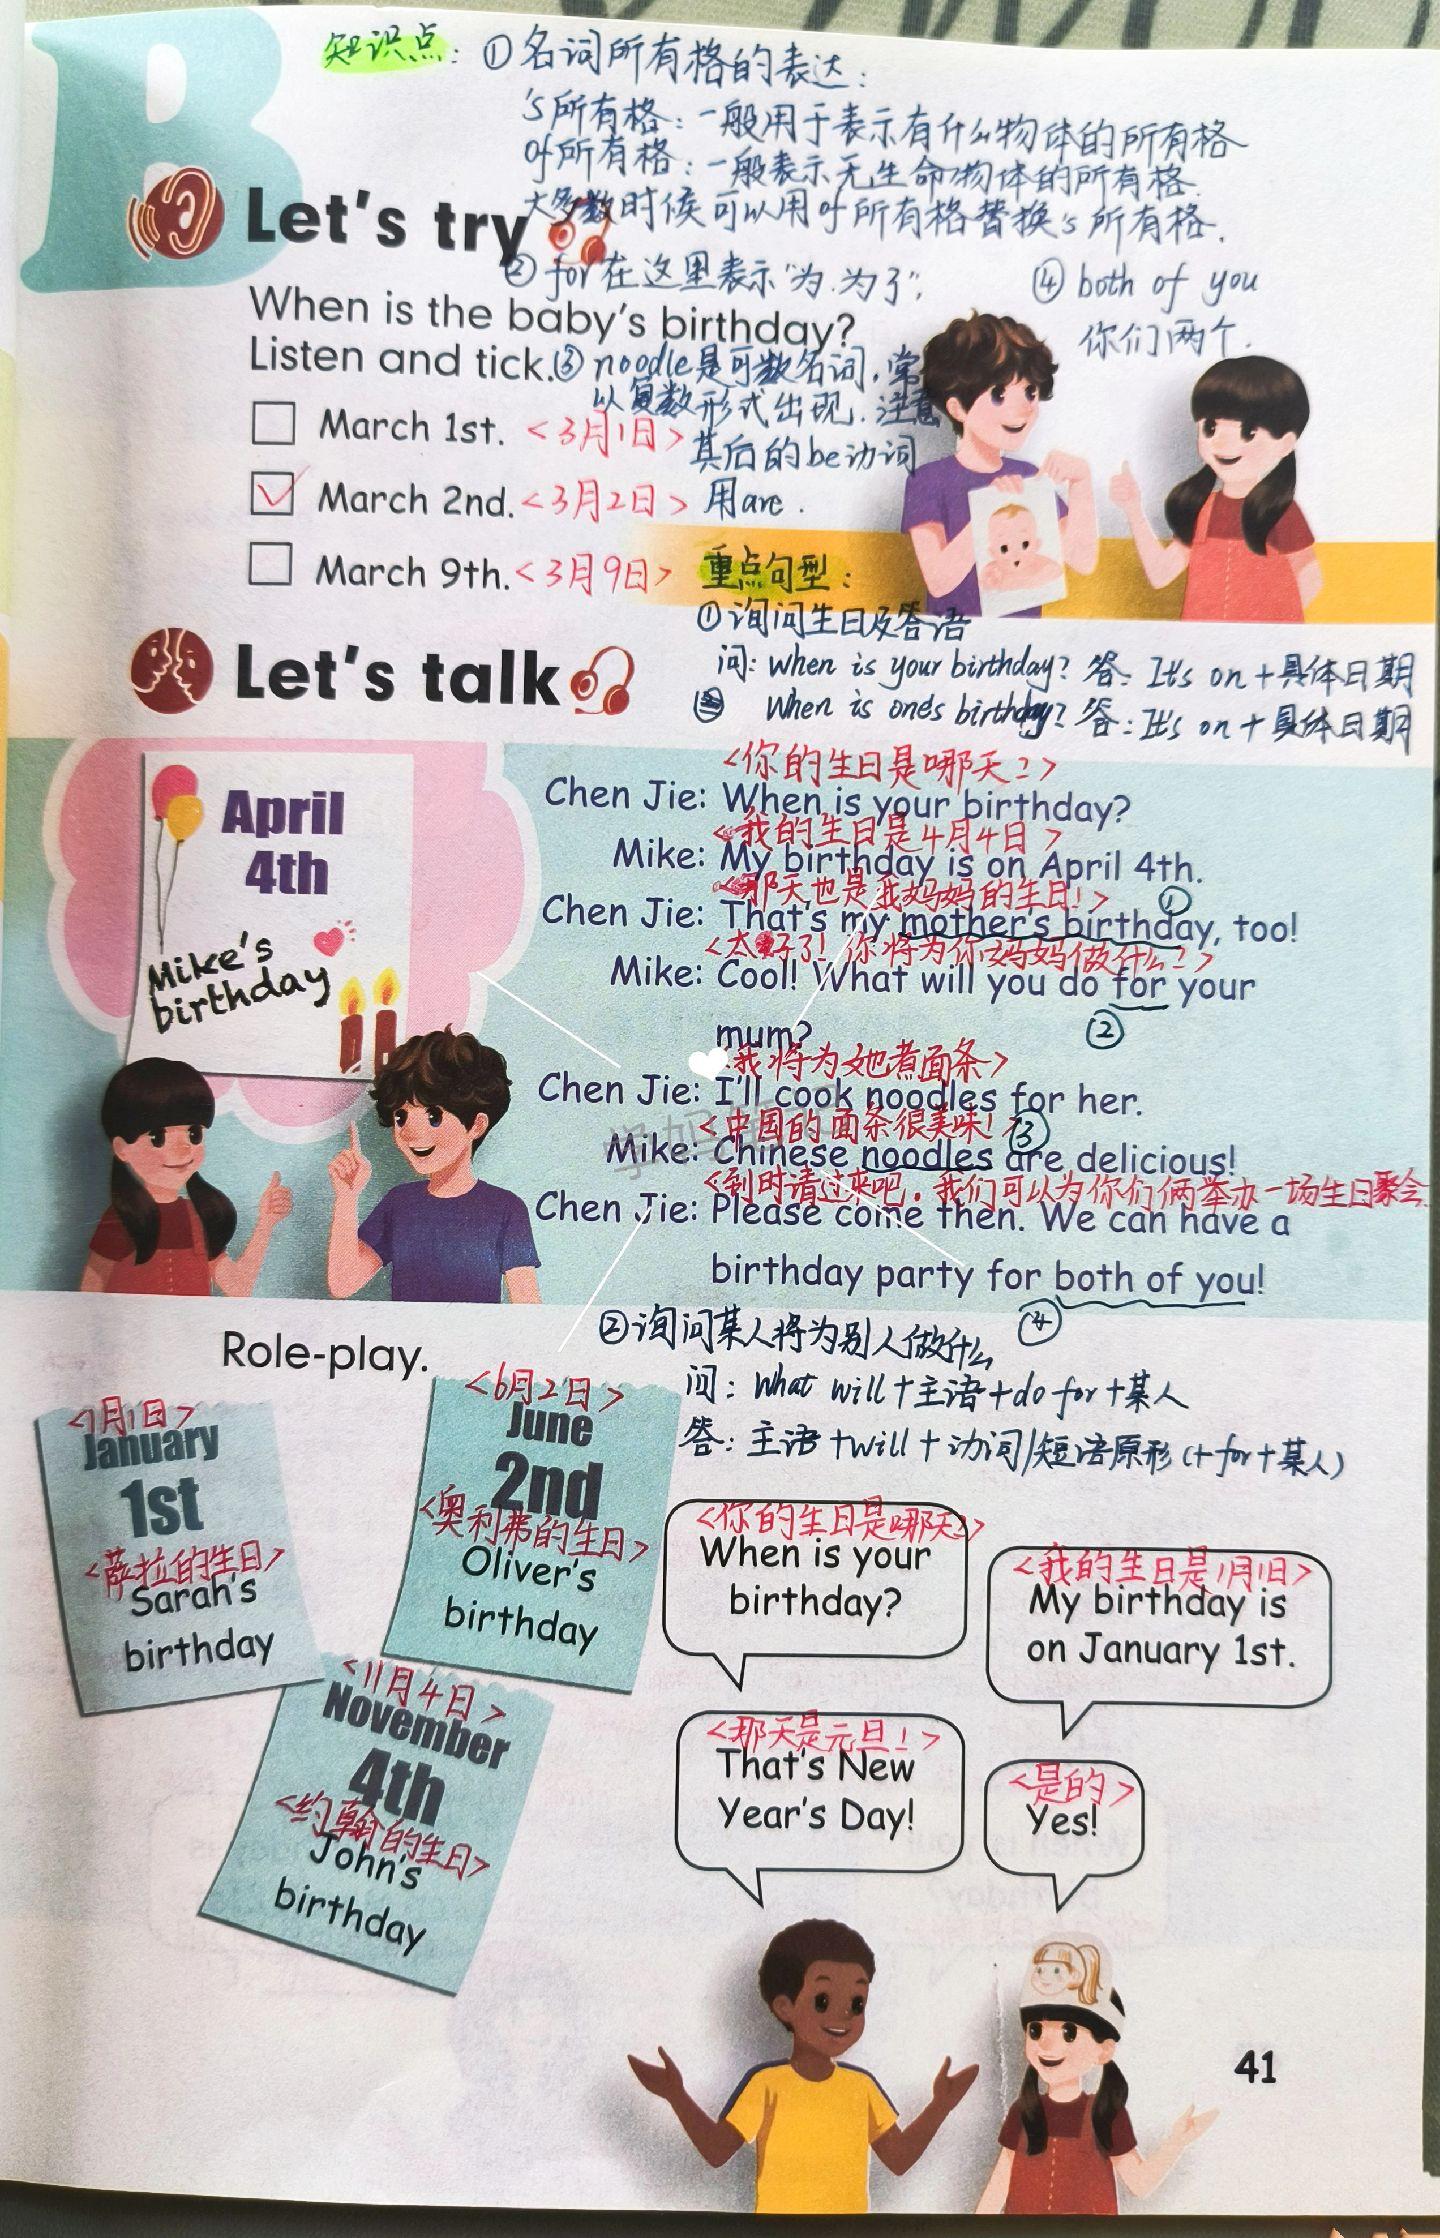 B
知识点：①名词所有格的表达：
's所有格：一般用于表示有什么物体的所有格
of所有格：一般表示无生命物体的所有格.
大多数时候可以用of所有格替换's所有格.
Let's try
②for在这里表示"为.为了";
④both of you
你们两个.
When is the baby's birthday?
Listen and tick.
③noodle是可数名词.常
以复数形式出现.注意
其后的be动词
用are.
March 1st. <3月1日>
March 2nd. <3月2日>
March 9th. <3月9日>
重点句型：
①询问生日及答语
问: When is your birthday? 答: It's on+具体日期
When is one's birthday? 答: It's on+具体日期
Let's talk
April
4th
Mike's
birthday
<你的生日是哪天?>
Chen Jie: When is your birthday?
<我的生日是4月4日>
Mike: My birthday is on April 4th.
<那天也是我妈妈的生日!> ①
Chen Jie: That's my mother's birthday, too!
<太好了! 你将为你妈妈做什么?>
Mike: Cool! What will you do for your
mum? ②
<我将为她煮面条>
Chen Jie: I'll cook noodles for her.
<中国的面条很美味! ③
Mike: Chinese noodles are delicious!
<到时请过来吧.我们可以为你们俩举办一场生日聚会.
Chen Jie: Please come then. We can have a
birthday party for both of you!
④
②询问某人将为别人做什么
问: What will+主语+do for+某人
答: 主语+will+动词/短语原形(+for+某人)
Role-play.
<1月1日>
January
1st
<萨拉的生日>
Sarah's
birthday
<6月2日>
June
2nd
<奥利弗的生日>
Oliver's
birthday
<11月4日>
November
4th
<约翰的生日>
John's
birthday
<你的生日是哪天?>
When is your
birthday?
<我的生日是1月1日>
My birthday is
on January 1st.
<那天是元旦!>
That's New
Year's Day!
<是的>
Yes!
41